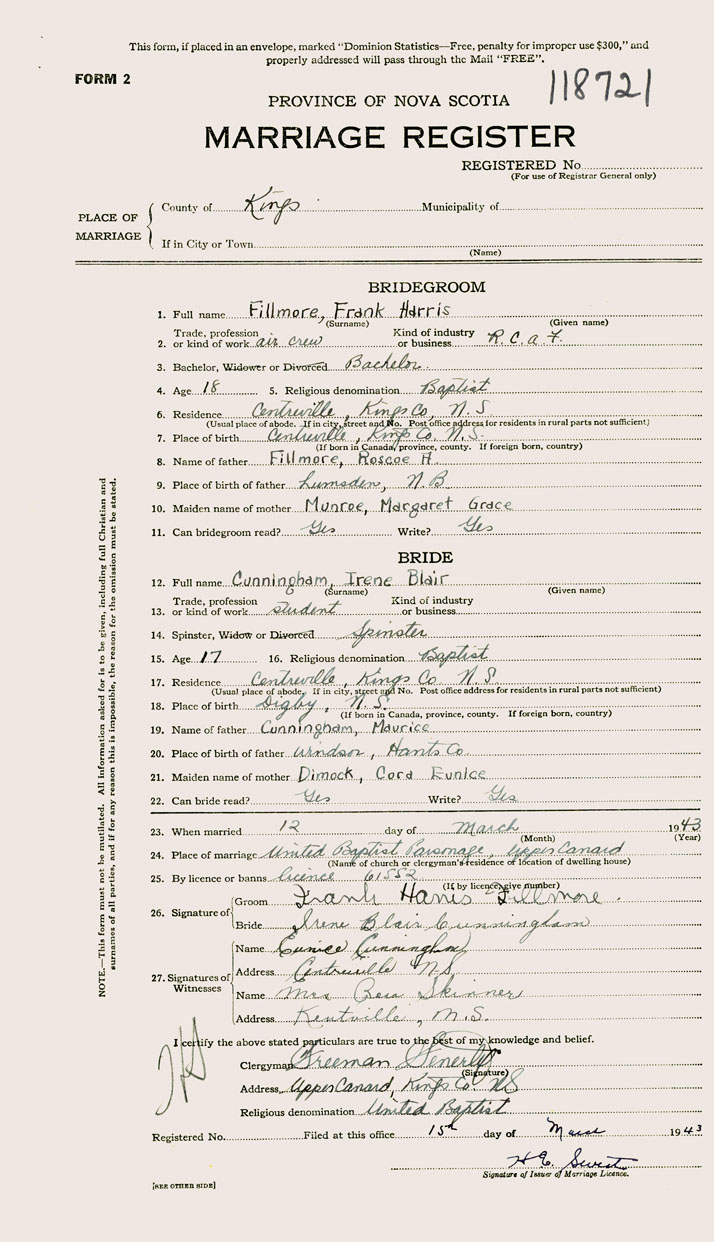 This form, if placed in an envelope, marked "Dominion Statistics—Free, penalty for improper use $300," and
properly addressed will pass through the Mail "FREE".
FORM 2
118721
PROVINCE OF NOVA SCOTIA
MARRIAGE REGISTER
REGISTERED No.
(For use of Registrar General only)
PLACE OF MARRIAGE
County of Kings Municipality of
If in City or Town
(Name)
BRIDEGROOM
1. Full name Fillmore, Frank Harris
(Surname) (Given name)
2. Trade, profession or kind of work air crew Kind of industry or business R.C.A.F.
3. Bachelor, Widower or Divorced Bachelor
4. Age 18 5. Religious denomination Baptist
6. Residence Centreville, Kings Co, N.S
(Usual place of abode. If in city, street and No. Post office address for residents in rural parts not sufficient)
7. Place of birth Centreville, Kings Co. N.S.
(If born in Canada, province, county. If foreign born, country)
8. Name of father Fillmore, Roscoe A
9. Place of birth of father Lumsden, N.B
10. Maiden name of mother Munroe, Margaret Grace
11. Can bridegroom read? Yes Write? Yes
BRIDE
12. Full name Cunningham, Irene Blair
(Surname) (Given name)
13. Trade, profession or kind of work student Kind of industry or business
14. Spinster, Widow or Divorced Spinster
15. Age 17 16. Religious denomination Baptist
17. Residence Centreville, Kings Co. N.S.
(Usual place of abode. If in city, street and No. Post office address for residents in rural parts not sufficient)
18. Place of birth Digby, N.S.
(If born in Canada, province, county. If foreign born, country)
19. Name of father Cunningham, Maurice
20. Place of birth of father Windsor, Hants Co.
21. Maiden name of mother Dimock, Cora Eunice
22. Can bride read? Yes Write? Yes
23. When married 12 day of March 1943
(Month) (Year)
24. Place of marriage United Baptist Parsonage, Upper Canard
(Name of church or clergyman's residence or location of dwelling house)
25. By licence or banns licence 61552
(If by licence, give number)
26. Signature of
Groom Frank Harris Fillmore.
Bride Irene Blair Cunningham
27. Signatures of Witnesses
Name Eunice Cunningham
Address Centreville NS
Name Mrs Skinner
Address Kentville, N.S.
I certify the above stated particulars are true to the best of my knowledge and belief.
Clergyman Freeman Fenerty
(Signature)
Address Upper Canard, Kings Co. NS
Religious denomination United Baptist
Registered No. Filed at this office 15th day of March 1943
H E Sweet
Signature of Issuer of Marriage Licence.
[SEE OTHER SIDE]
NOTE.—This form must not be mutilated. All information asked for is to be given, including full Christian and
surnames of all parties, and if for any reason this is impossible, the reason for the omission must be stated.